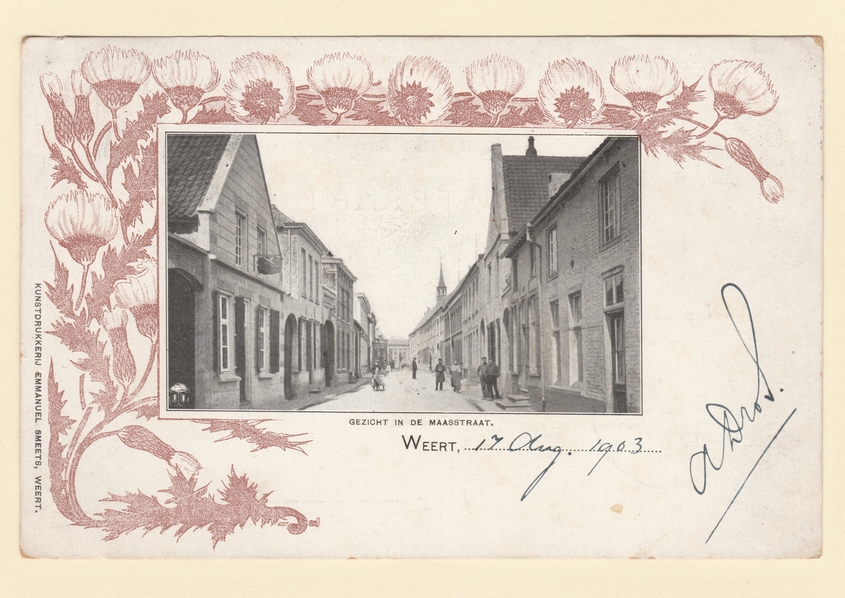 GEZICHT IN DE MAASSTRAAT.
WEERT, 17 Aug. 1903
KUNSTDRUKKERIJ EMMANUEL SMEETS, WEERT.